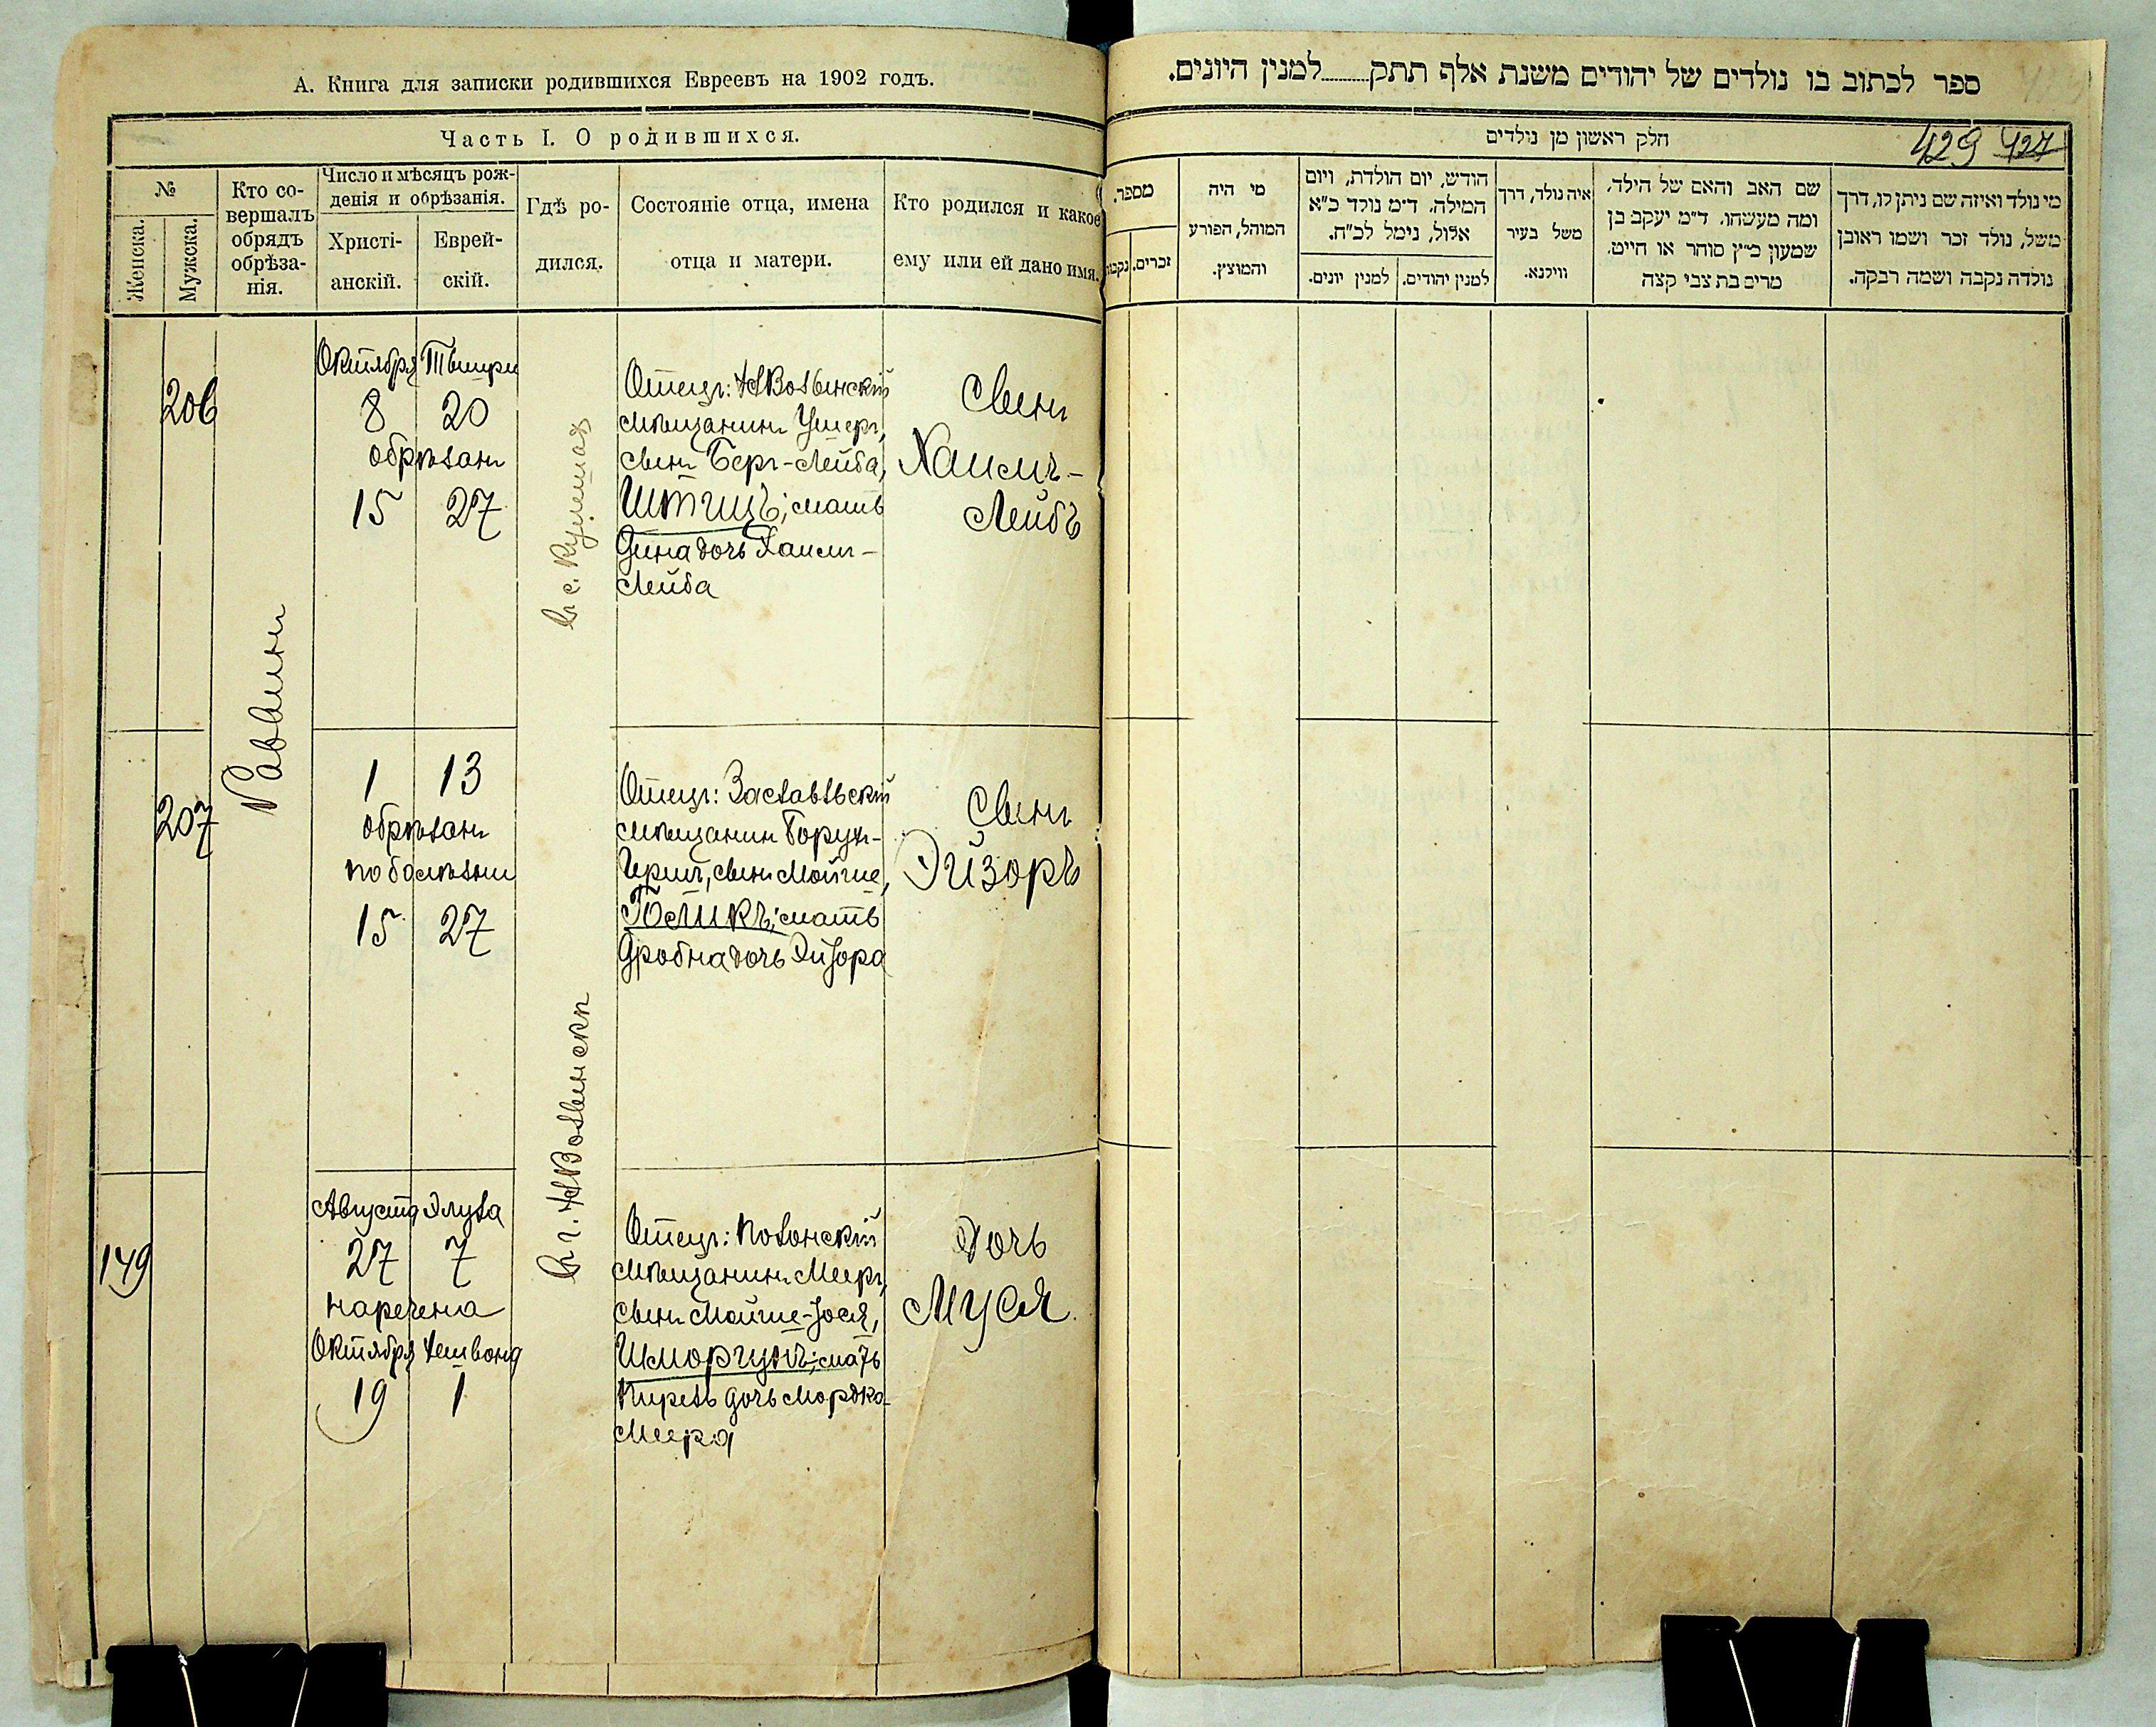 А. Книга для записки родившихся Евреевъ на 1902 годъ.
Часть I. О родившихся.
№
Женска.
Мужска.
Кто со-
вершалъ
обрядъ
обрѣза-
нія.
Число и мѣсяцъ рож-
денія и обрѣзанія.
Христі-
анскій.
Еврей-
скій.
Гдѣ ро-
дился.
Состояніе отца, имена
отца и матери.
Кто родился и какое
ему или ей дано имя.
206
Раввинъ
Октября Тишри
8 20
обрѣзанъ
15 27
Въ с. Кулешах
Отецъ: НВолынскій
мѣщанинъ Ушеръ,
сынъ Беръ-Лейба,
Штицъ; мать
Дина дочь Хаимъ-
Лейба
Сынъ
Хаимъ-
Лейбъ
207
1 13
обрѣзанъ
по болѣзни
15 27
Въ г. НВолынскѣ
Отецъ: Заславльскій
мѣщанин Борух-
Герш, сынъ Мойше,
мать
Дробна дочь Эйзора
Сынъ
Эйзоръ
149
Августа Элула
27 7
наречена
Октября Хешвона
19 1
Отецъ: Полонскій
мѣщанинъ Мееръ,
сынъ Мойше-Іося,
Шморгунъ; мать
Пирель дочь Мордко-
Меера
Дочь
Муся.
ספר לכתוב בו נולדים של יהודים משנת אלף תתק........למנין היונים.
חלק ראשון מן נולדים
429 427
מספר.
זכרים.
נקבות
מי היה
המוהל, הפורע
והמוצץ.
חודש, יום הולדת, ויום
המילה, ד״מ נולד כ״א
אלול, נימל לכ״ח.
למנין יונים.
למנין יהודים.
איה נולד, דרך
משל בעיר
ווילנא.
שם האב והאם של הילד,
ומה מעשהו. ד״מ יעקב בן
שמעון מ״ץ סוחר או חייט.
מרים בת צבי קצה
מי נולד ואיזה שם ניתן לו, דרך
משל, נולד זכר ושמו ראובן
נולדה נקבה ושמה רבקה.